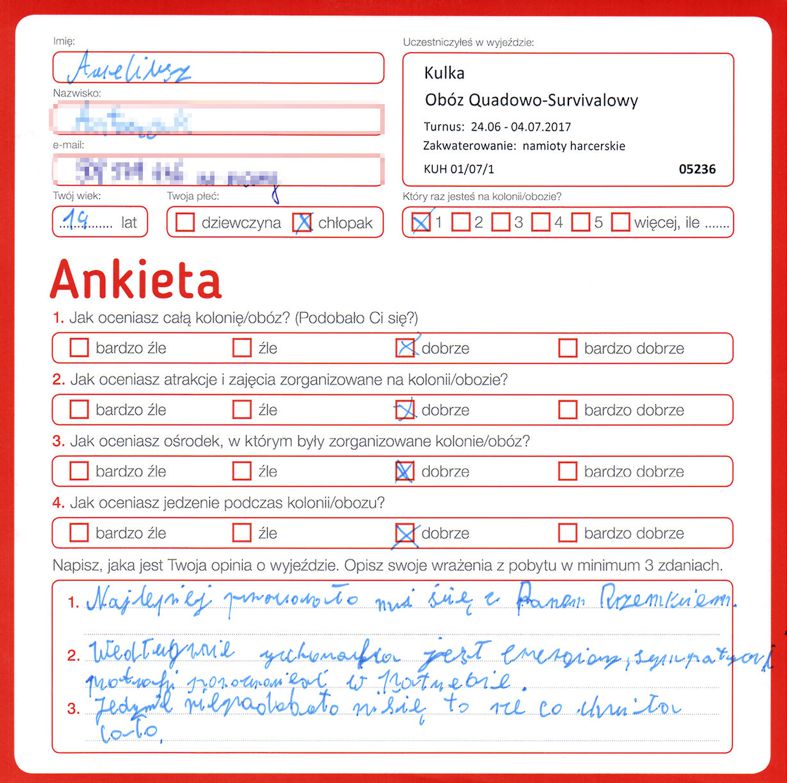 Imię:
Aureliusz
Nazwisko:
e-mail:
Twój wiek:
14 lat
Twoja płeć:
dziewczyna chłopak
Uczestniczyłeś w wyjeździe:
Kulka
Obóz Quadowo-Survivalowy
Turnus: 24.06 - 04.07.2017
Zakwaterowanie: namioty harcerskie
KUH 01/07/1 05236
Który raz jesteś na kolonii/obozie?
1 2 3 4 5 więcej, ile .......
Ankieta
1. Jak oceniasz całą kolonię/obóz? (Podobało Ci się?)
bardzo źle źle dobrze bardzo dobrze
2. Jak oceniasz atrakcje i zajęcia zorganizowane na kolonii/obozie?
bardzo źle źle dobrze bardzo dobrze
3. Jak oceniasz ośrodek, w którym były zorganizowane kolonie/obóz?
bardzo źle źle dobrze bardzo dobrze
4. Jak oceniasz jedzenie podczas kolonii/obozu?
bardzo źle źle dobrze bardzo dobrze
Napisz, jaka jest Twoja opinia o wyjeździe. Opisz swoje wrażenia z pobytu w minimum 3 zdaniach.
1. Najlepiej mi się z Panem
2. jest
w potrzebie.
3. Jedynie to że co chwila